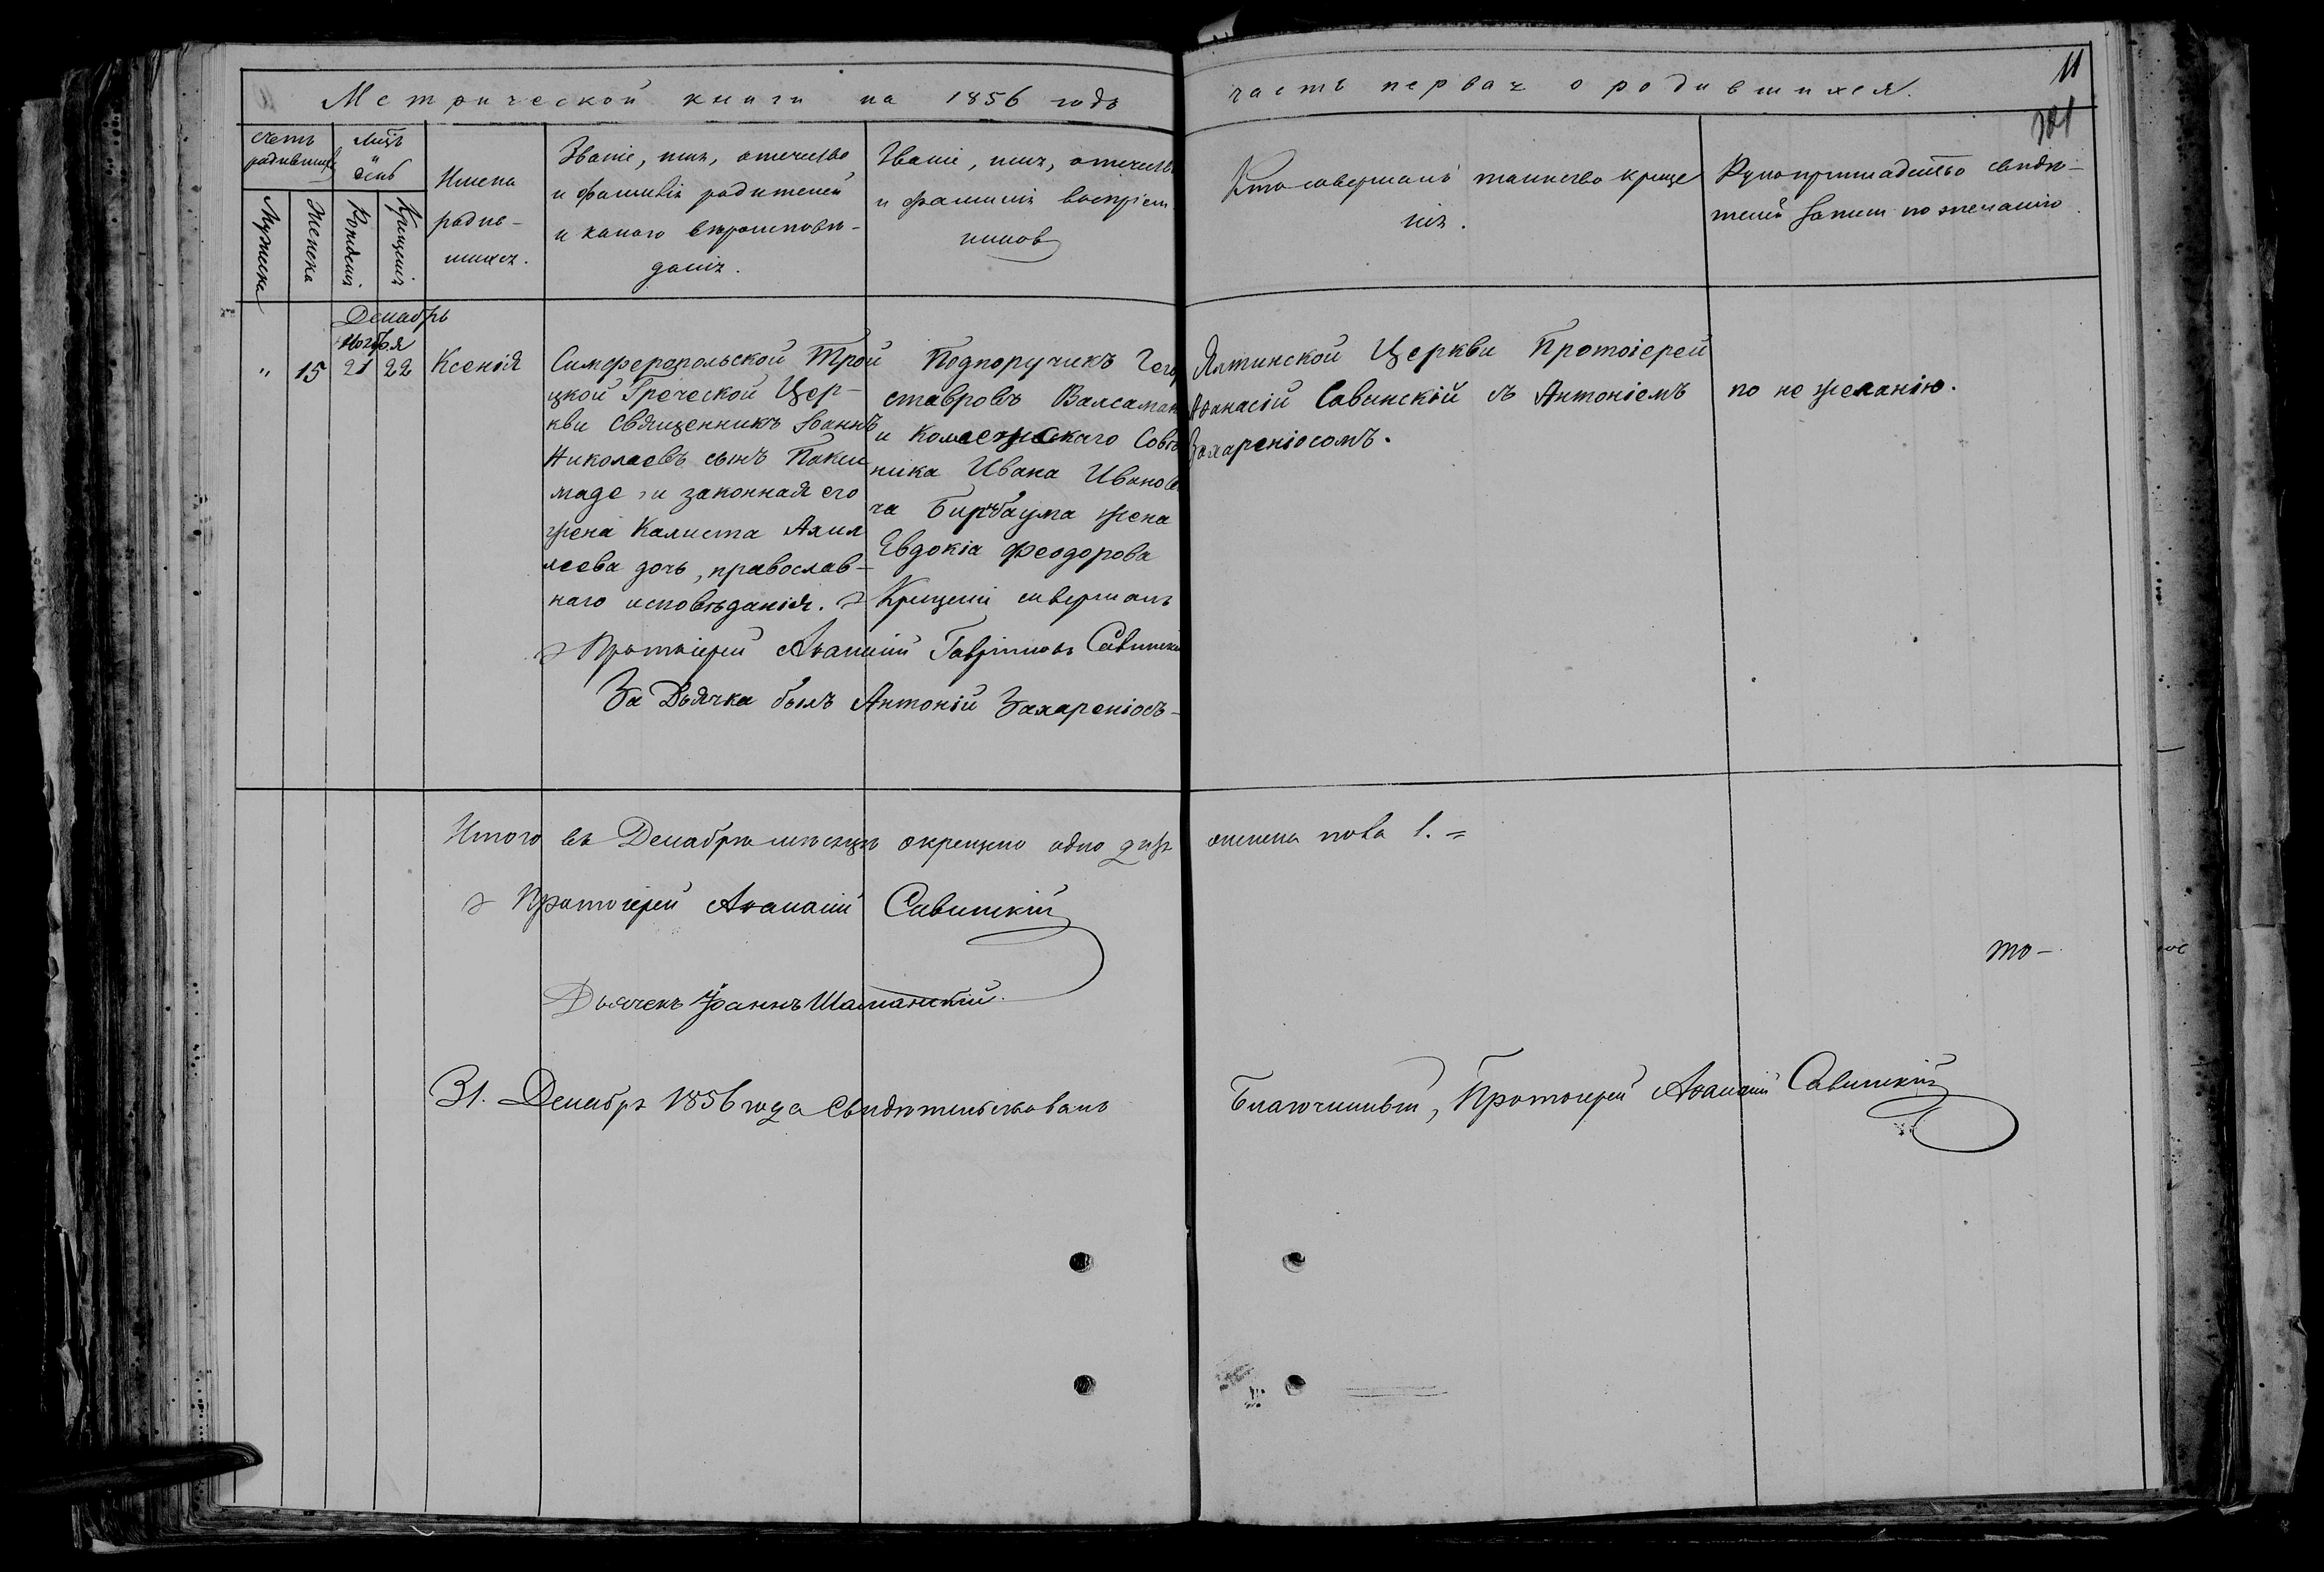 Метрической книги на 1856 годъ
часть первая о родившихся.
11
Счетъ родившихся
Мужеска
Женска
Мцъ и день
Рожденія.
Крещенія
Имена
родив-
шихся.
Званіе, имя, отчество
и фамилія родителей
и какого вѣроисповѣ-
данія.
Званіе, имя, отчеств
и фамилія воспріем
никовъ
Кто совершалъ таинство креще
нія.
Рукоприкладство свидѣ-
телей записи по желанію.
Декабрь
Ноября
" 15 21 22 Ксенія
Симферопольской Трой
цкой Греческой Цер-
кви Священникъ Іоаннъ
Николаевъ сынъ Пакси
маде, и законная его
жена Калиста Ахил
леева дочь, православ-
наго исповѣданія.
Подпоручикъ Геор
ставровъ Валсамак
и Коллежскаго Совѣт
ника Ивана Иванов
ча Бирбаума жена
Евдокіа Феодорова
Крещеніе совершалъ
Протоіерей Аѳанасій Гавріиловъ Савинскій
За Дьячка былъ Антоній Захареніосъ-
Ялтинской Церкви Протоіерей
Аѳанасій Савинскій съ Антоніемъ
Захареніосомъ.
по не желанію.
Итого въ Декабрѣ мѣсяцѣ окрещено одно женска пола 1. =
Протоіерей Аѳанасій Савинскій
то-
Дьячекъ Іоаннъ Шаманскій.
31. Декабря 1856 года Свидѣтельствовалъ Благочинный, Протоіерей Аѳанасій Савинскій